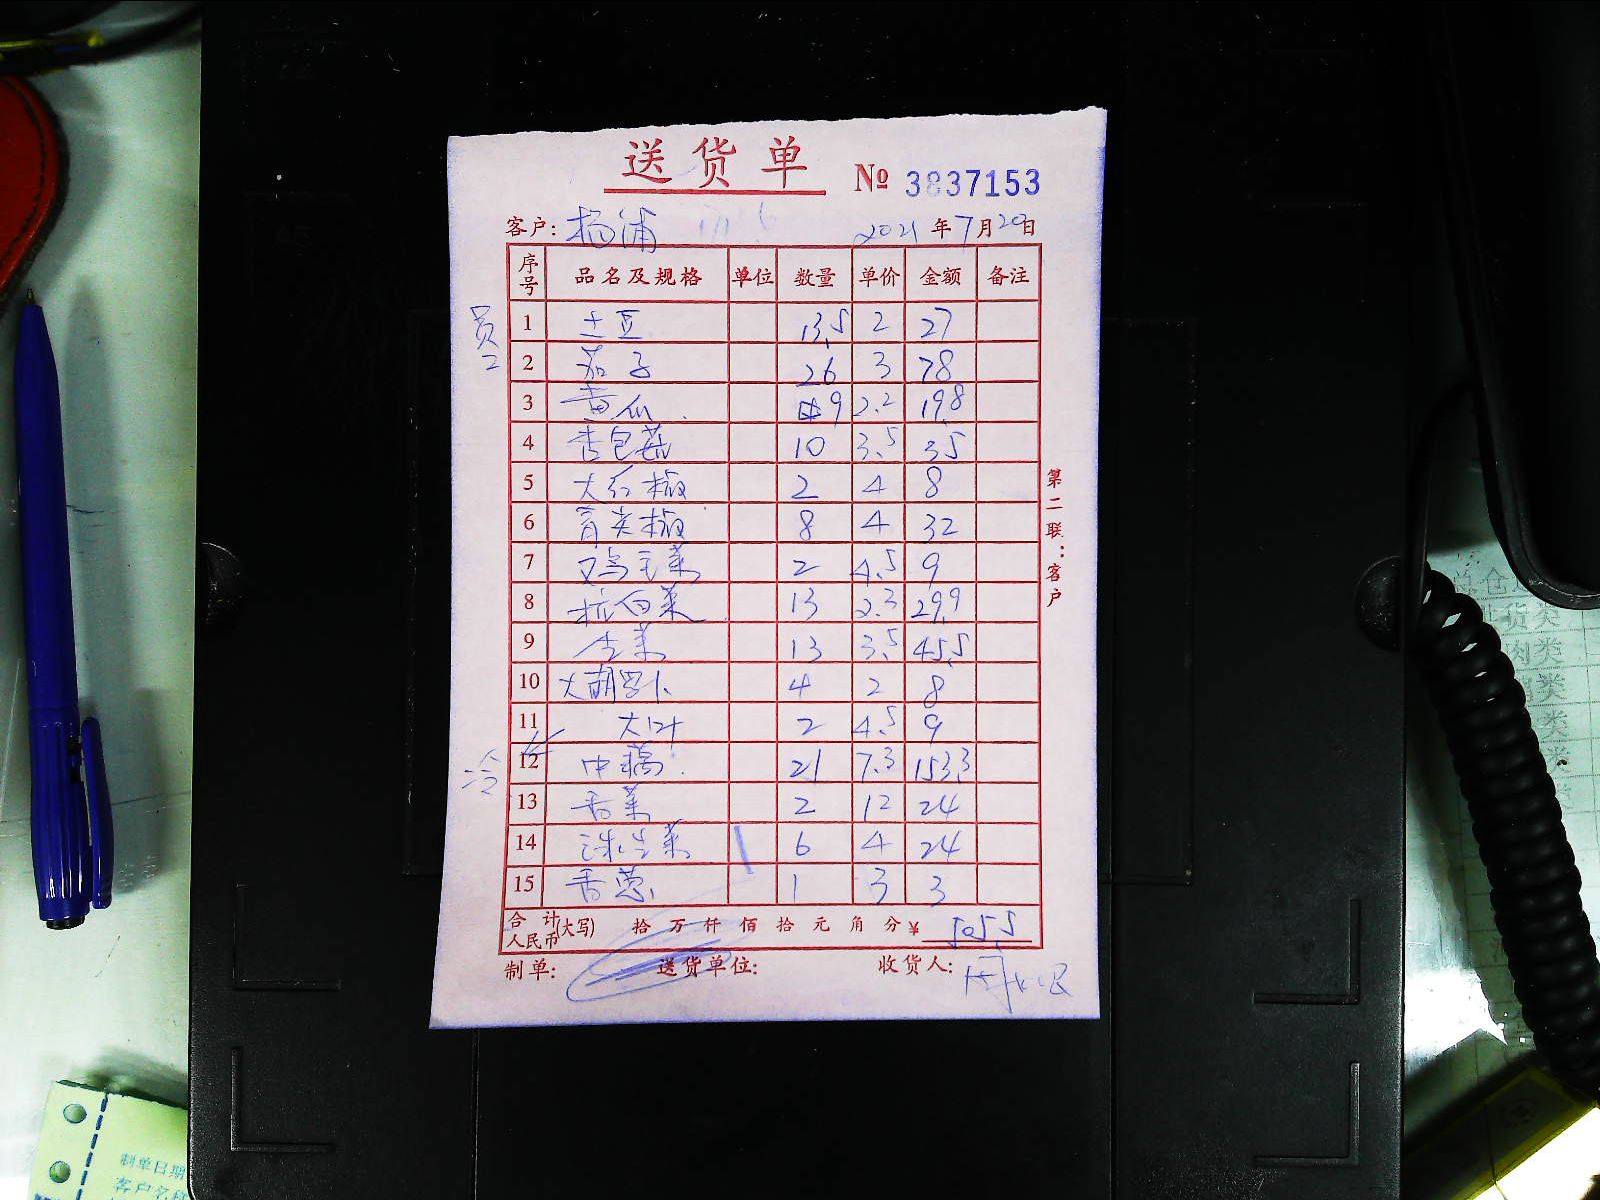 送货单 № 3837153
客户: 杨浦 2021年7月20日
序号 品名及规格 单位 数量 单价 金额 备注
员工
1 土豆 13.5 2 27
2 茄子 26 3 78
3 黄瓜 9 2.2 19.8
4 杏包菇 10 3.5 35
5 大红椒 2 4 8
6 青尖椒 8 4 32
7 鸡毛菜 2 4.5 9
8 杭白菜 13 2.3 29.9
9 生菜 13 3.5 45.5
10 大胡萝卜 4 2 8
11 大叶 2 4.5 9
冷
12 中 21 7.3 153.3
13 香菜 2 12 24
14 球生菜 6 4 24
15 香葱 1 3 3
合计人民币(大写) 拾 万 仟 佰 拾 元 角 分 ¥ 505.5
制单: 送货单位: 收货人: 周
第二联:客户
货类
肉类
类
类
类
制单日期
客户名称